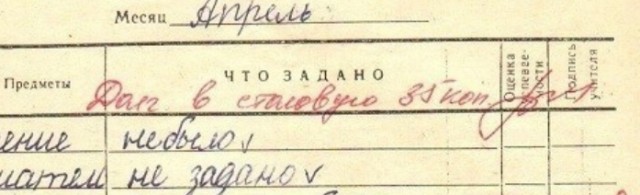 Месяц Апрель
Предметы ЧТО ЗАДАНО Оценка успевае- мости Подпись учителя
Долг в столовую 35 коп
ение небыло
матем не задано